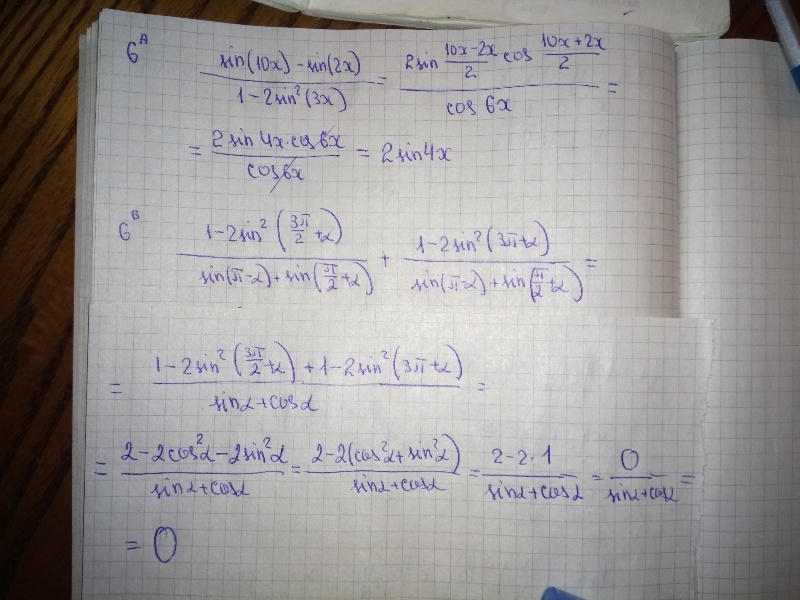 6^A (sin(10x) - sin(2x))/(1 - 2sin²(3x)) = (2sin (10x-2x)/2 cos (10x+2x)/2)/(cos 6x) =
= (2sin 4x · cos 6x)/(cos 6x) = 2sin4x
6^B (1-2sin²(3π/2 + α))/(sin(π-α)+sin(π/2+α)) + (1-2sin²(3π+α))/(sin(π-α)+sin(π/2+α)) =
= (1-2sin²(3π/2+α)+1-2sin²(3π+α))/(sinα+cosα) =
= (2-2cos²α-2sin²α)/(sinα+cosα) = (2-2(cos²α+sin²α))/(sinα+cosα) = (2-2·1)/(sinα+cosα) = 0/(sinα+cosα) =
= 0